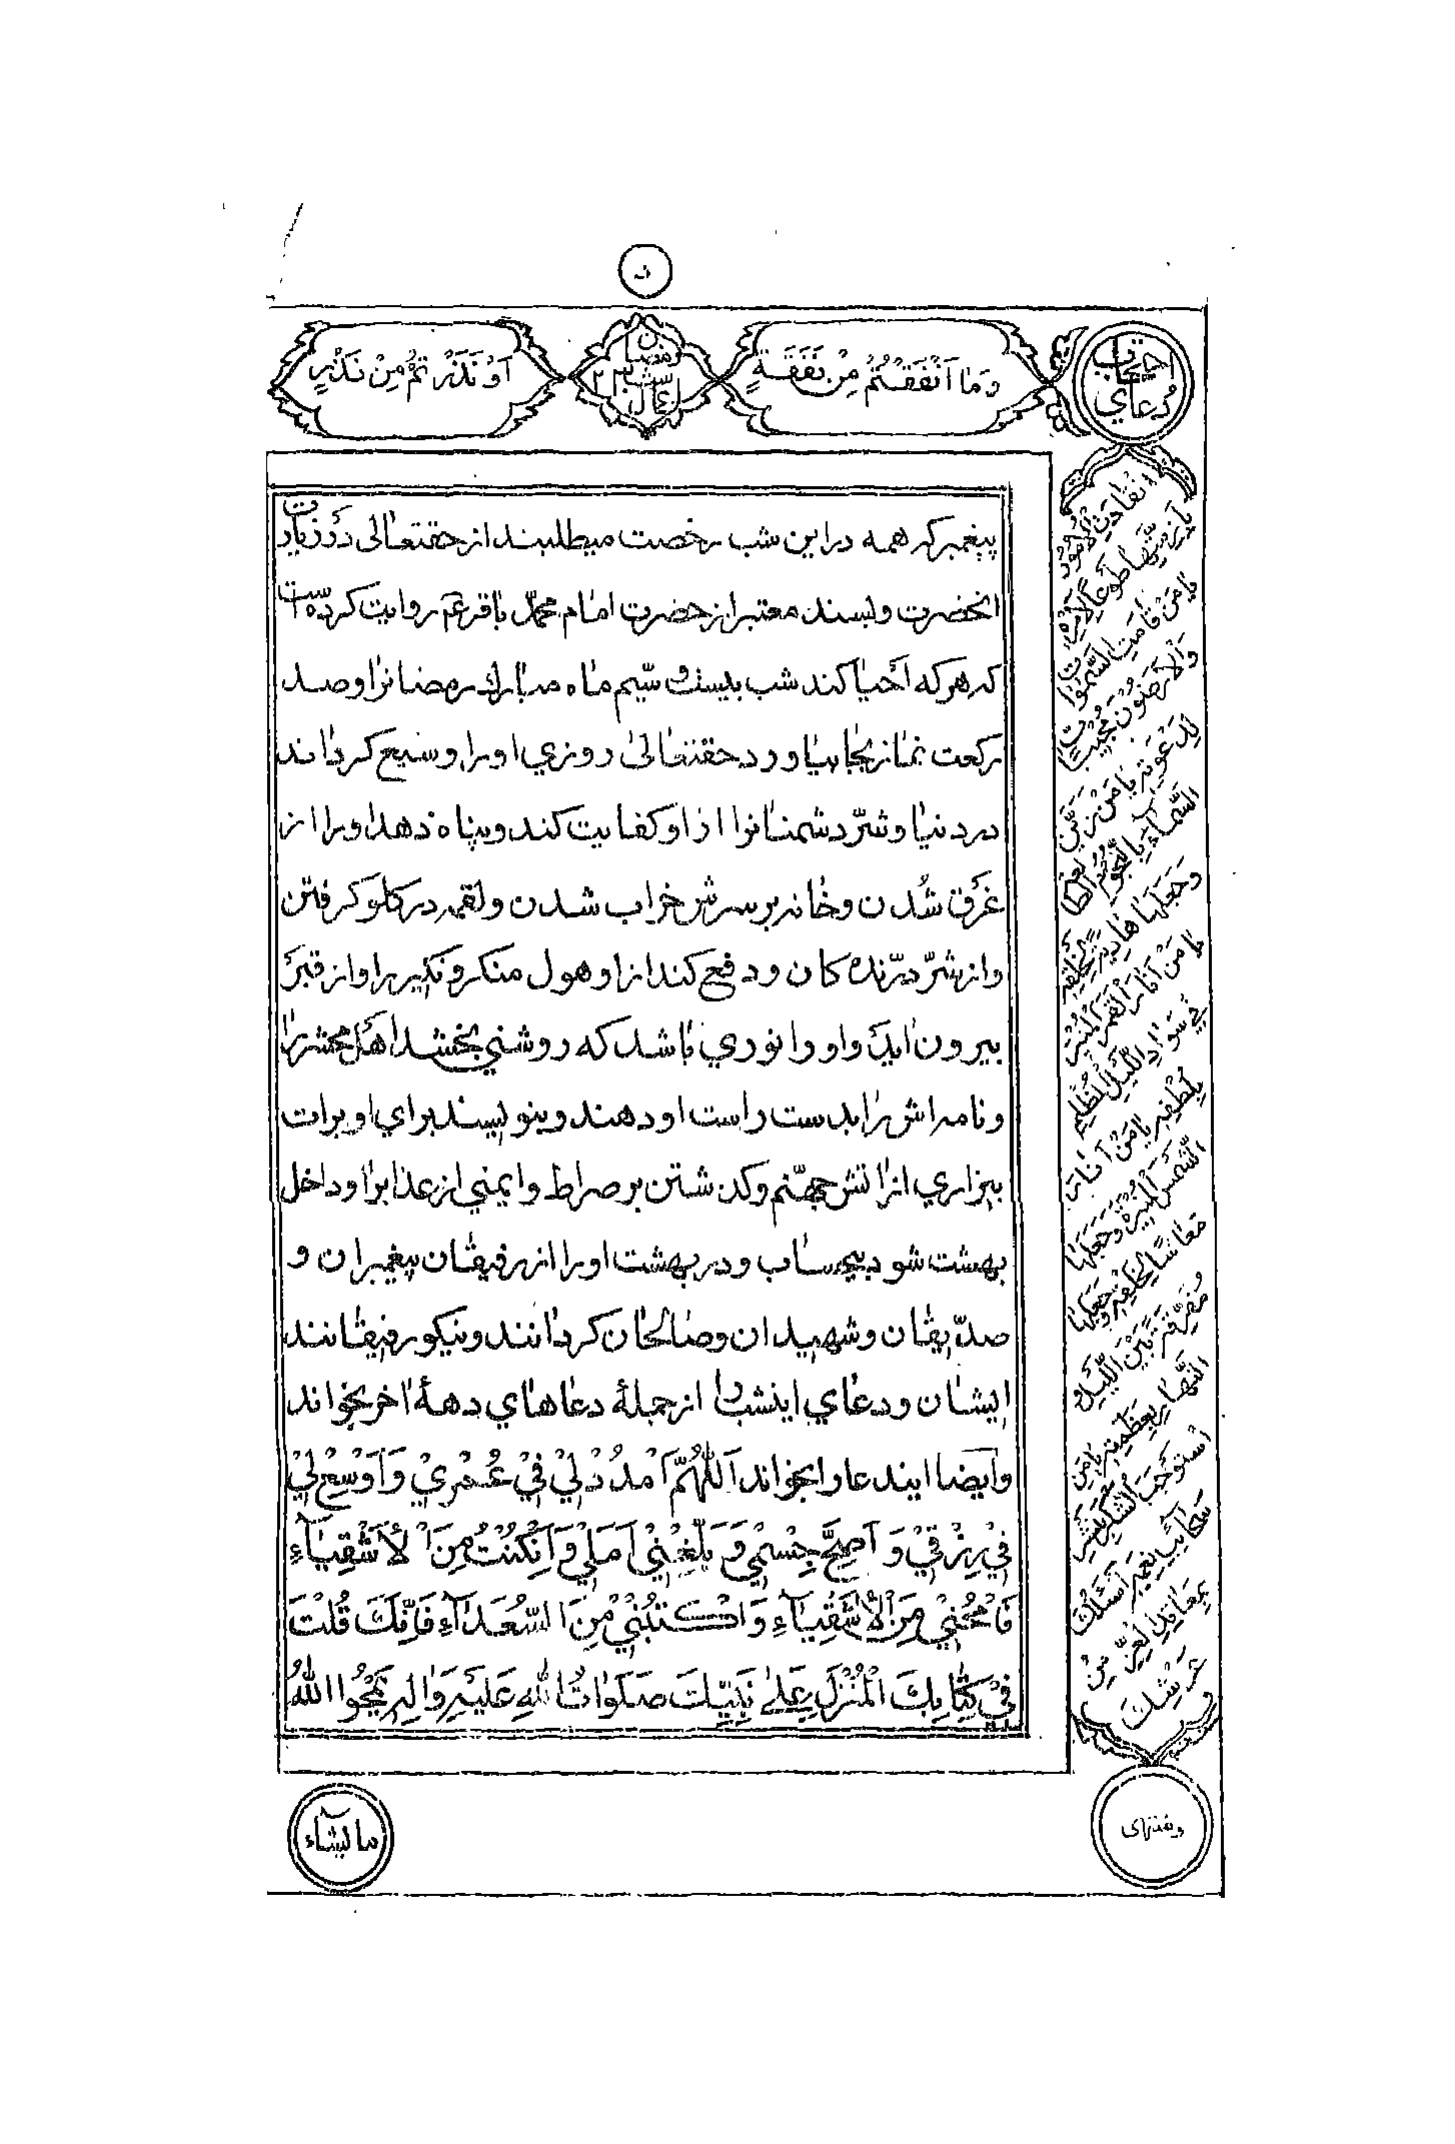 وَمٰا اَنْفَقْتُمْ مِنْ نَفَقَةٍ
اَوْ نَذَرْتُمْ مِنْ نَذْرٍ
پیغمبر که همه در این شب رخصت میطلبند از حقتعالی در زیارت
انحضرت و بسند معتبر از حضرت امام محمّد باقر ع م روایت کرده است
که هر که اَحْیٰا کند شب بیست و سیّم ماه مبارک رمضانرا و صد
رکعت نماز بجا بیاورد حقتعٰالیٰ روزي او را وسیع کرداند
در دنیا و شرّ دشمنانرا از او کفایت کند و پناه دهد او را از
غرق شدن و خانه بر سرش خراب شدن و لقمه در کلو کرفتن
و از شرّ درّنده کان و دفع کند از او هول منکر و نکیر را و از قبر
بیرون اید و او را نوري باشد که روشني بخشد اهل محشر را
و نامه اش را بدست راست او دهند و بنویسند براي او برات
بیزاري از اتش جهنّم و کذشتن بر صراط و ایمني از عذاب و او داخل
بهشت شود بیحساب و در بهشت او را از رفیقان پیغمبران و
صدّیقان و شهیدان و صالحان کردانند و نیکو رفیقانند
ایشان و دعاي اینشب را از جملهٔ دعاهاي دههٔ اخر بخواند
و ایضا ایندعا را بخواند اَللّٰهُمَّ امْدُدْ لِيْ فِيْ عُمْرِيْ وَاَوْسِعْ لِيْ
فِيْ رِزْقِيْ وَ اَصِحَّ جِسْمِيْ وَ بَلِّغْنِيْ اَمَلِيْ وَ اِنْ كُنْتُ مِنَ الْاَشْقِيٰآءِ
فَامْحُنِيْ مِنَ الْاَشْقِيٰآءِ وَاكْتُبْنِيْ مِنَ السُّعَدٰآءِ فَاِنَّكَ قُلْتَ
فِيْ كِتٰابِكَ الْمُنْزَلِ عَلىٰ نَبِيِّكَ صَلَوٰاتُ اللّٰهِ عَلَيْهِ وَاٰلِهِ يَمْحُوا اللّٰهُ
مٰا يَشٰآءُ
يٰا مَنْ قٰامَتِ السَّمٰوٰاتُ
وَالْاَرَضُوْنَ مُجِيْبٰاتٍ
لِدَعْوَتِهِ يٰا مَنْ زَيَّنَ
السَّمٰآءَ بِالنُّجُوْمِ الطّٰالِعَةِ
وَجَعَلَهٰا هٰادِيَةً لِخَلْقِهِ
يٰا مَنْ اَنٰارَ الْقَمَرَ الْمُنِيْرَ
فِيْ سَوٰادِ اللَّيْلِ الْمُظْلِمِ
بِلُطْفِهِ يٰا مَنْ اَنٰارَ
الشَّمْسَ الْمُنِيْرَةَ وَجَعَلَهٰا
مَعٰاشًا لِخَلْقِهِ وَجَعَلَهٰا
مُفَرِّقَةً بَيْنَ اللَّيْلِ وَ
النَّهٰارِ بِعَظَمَتِهِ يٰا مَنِ
اسْتَوْجَبَ الشُّكْرَ بِنَشْرِ
سَحٰائِبِ نِعَمِهِ اَسْئَلُكَ
بِمَعٰاقِدِ الْعِزِّ مِنْ
عَرْشِكَ